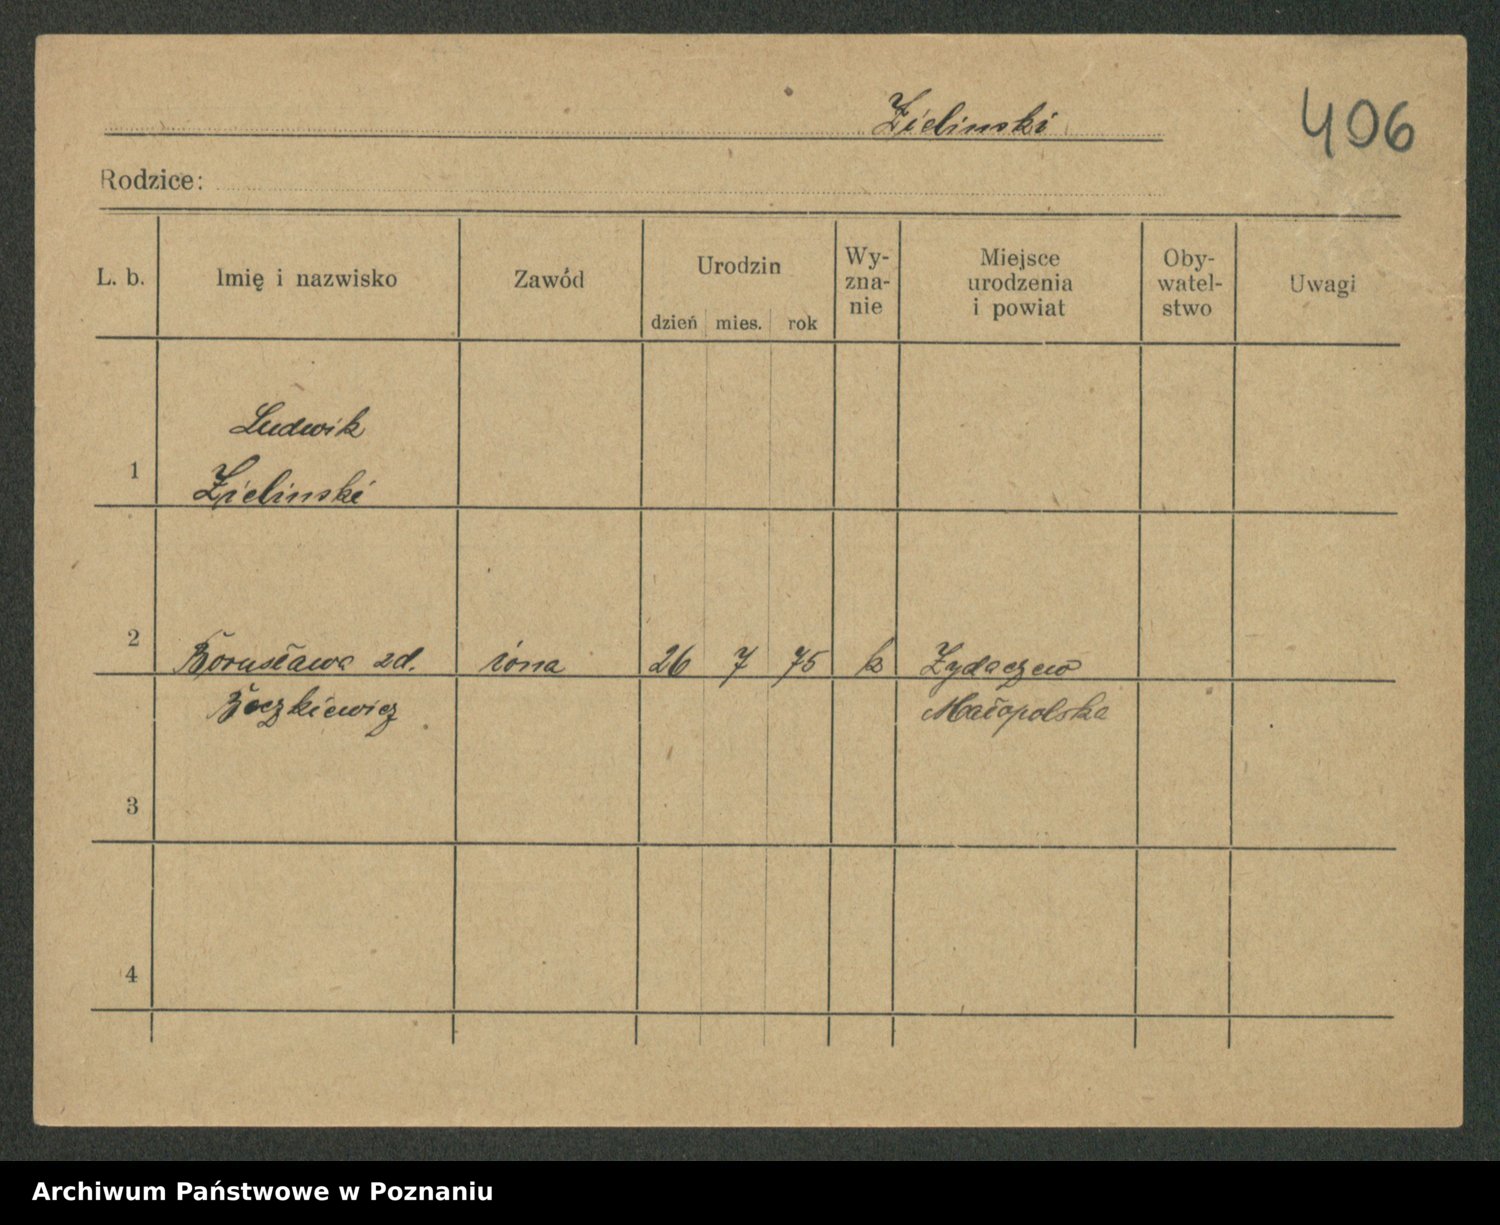 Zielinski
406
Rodzice:
L. b. Imię i nazwisko Zawód Urodzin dzień mies. rok Wy-zna-nie Miejsce urodzenia i powiat Oby-watel-stwo Uwagi
Ludwik
1 Zielinski
2 Borusława zd. żona 26 7 75 k Zydaczew
Boczkiewicz Małopolska
3
4
Archiwum Państwowe w Poznaniu